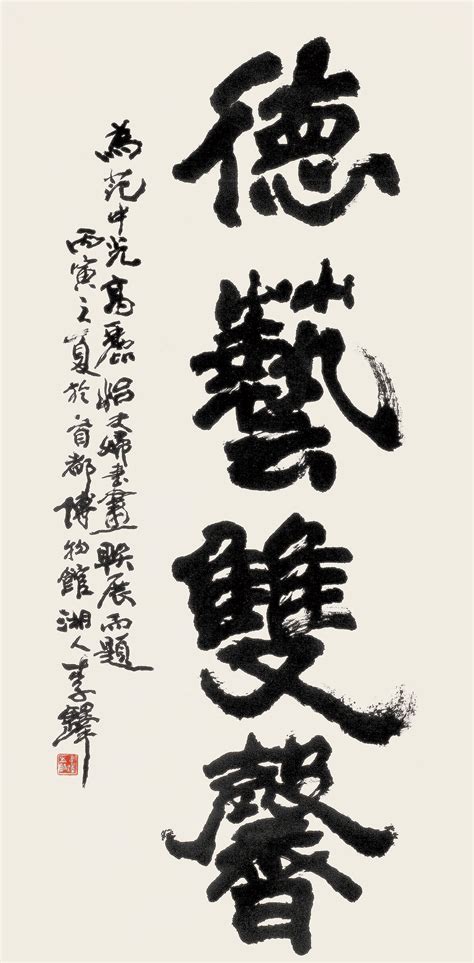 德藝雙馨
為范中光高麗娟夫婦書畫聯展而題
丙寅之夏於首都博物館湘人李鐸